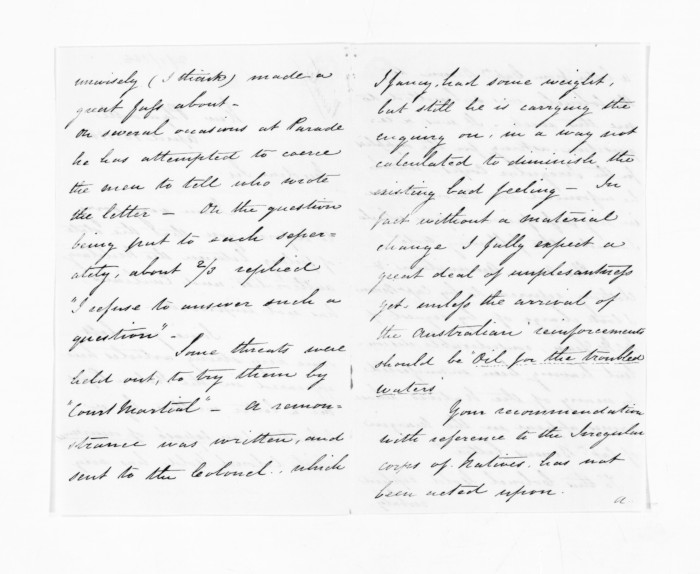 unwisely (I think) made a
great fuss about –
On several occasions at Parade
he has attempted to coerce
the men to tell who wrote
the letter – On the question
being put to each seper=
ately, about 2/3 replied
"I refuse to answer such a
question" –
Some threats were
held out, to try them by
"Court Martial" – A remon=
strance was written, and
sent to the Colonel., which
I fancy, had some weight,
but still he is carrying the
enquiry on, in a way not
calculated to diminish the
existing bad feeling – In
fact without a material
change I fully expect a
great deal of unplesantness
yet, unless the arrival of
the Australian reinforcements
should be "Oil for the troubled
waters"
Your recommendation
with reference to the Irregular
corps of Natives, has not
been acted upon.
a